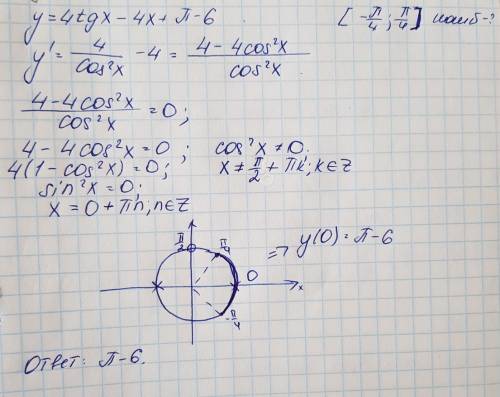 y = 4tgx - 4x + П - 6     [-П/4; П/4] наиб-?
y' = 4/cos²x - 4 = (4 - 4cos²x)/cos²x
(4 - 4cos²x)/cos²x = 0;
4 - 4cos²x = 0;     cos²x ≠ 0.
4(1 - cos²x) = 0;     x ≠ П/2 + Пk; k∈Z
sin²x = 0;
x = 0 + Пn; n∈Z
П/2     П/4     => y(0) = П - 6
0
x
-П/4
Ответ: П - 6.